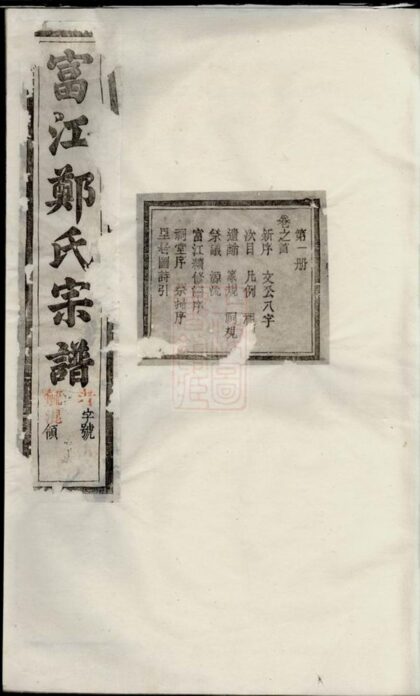 第一册
卷之首
新序 文公八字
次目 凡例
遺緒 家規 祠規
祭議 源流
富江續修 序
祠堂序 祭 序
墓圖詩引
富江鄭氏宗譜
字號